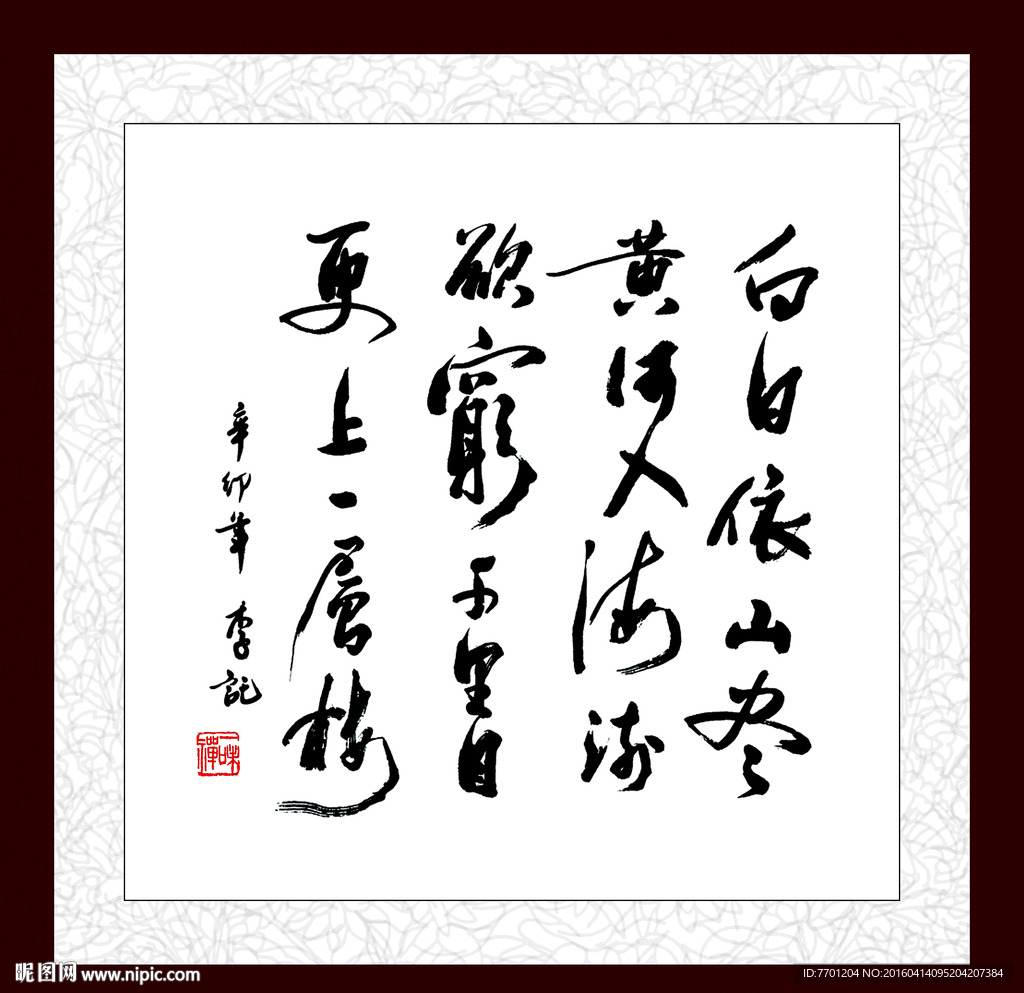 白日依山尽
黄河入海流
欲窮千里目
更上一層楼
辛卯年 李記
一味禪
昵图网 www.nipic.com
ID:7701204 NO:20160414095204207384